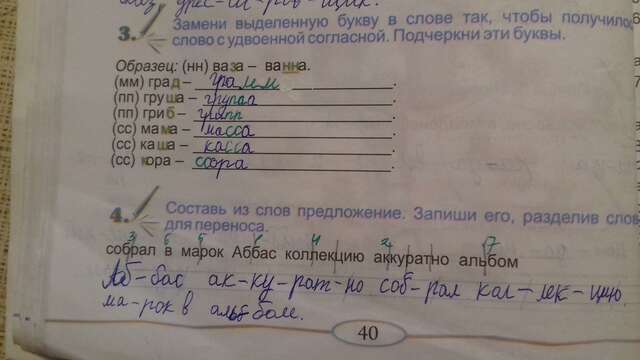 3. Замени выделенную букву в слове так, чтобы получилось
слово с удвоенной согласной. Подчеркни эти буквы.
Образец: (нн) ваза – ванна.
(мм) град – грамм.
(пп) груша – группа.
(пп) гриб – грипп.
(сс) мама – масса.
(сс) каша – касса.
(сс) кора – ссора.
4. Составь из слов предложение. Запиши его, разделив слов
для переноса.
3 6 5 1 4 2 7
собрал в марок Аббас коллекцию аккуратно альбом
Аб-бас ак-ку-рат-но соб-рал кол-лек-цию
ма-рок в альбом.
40